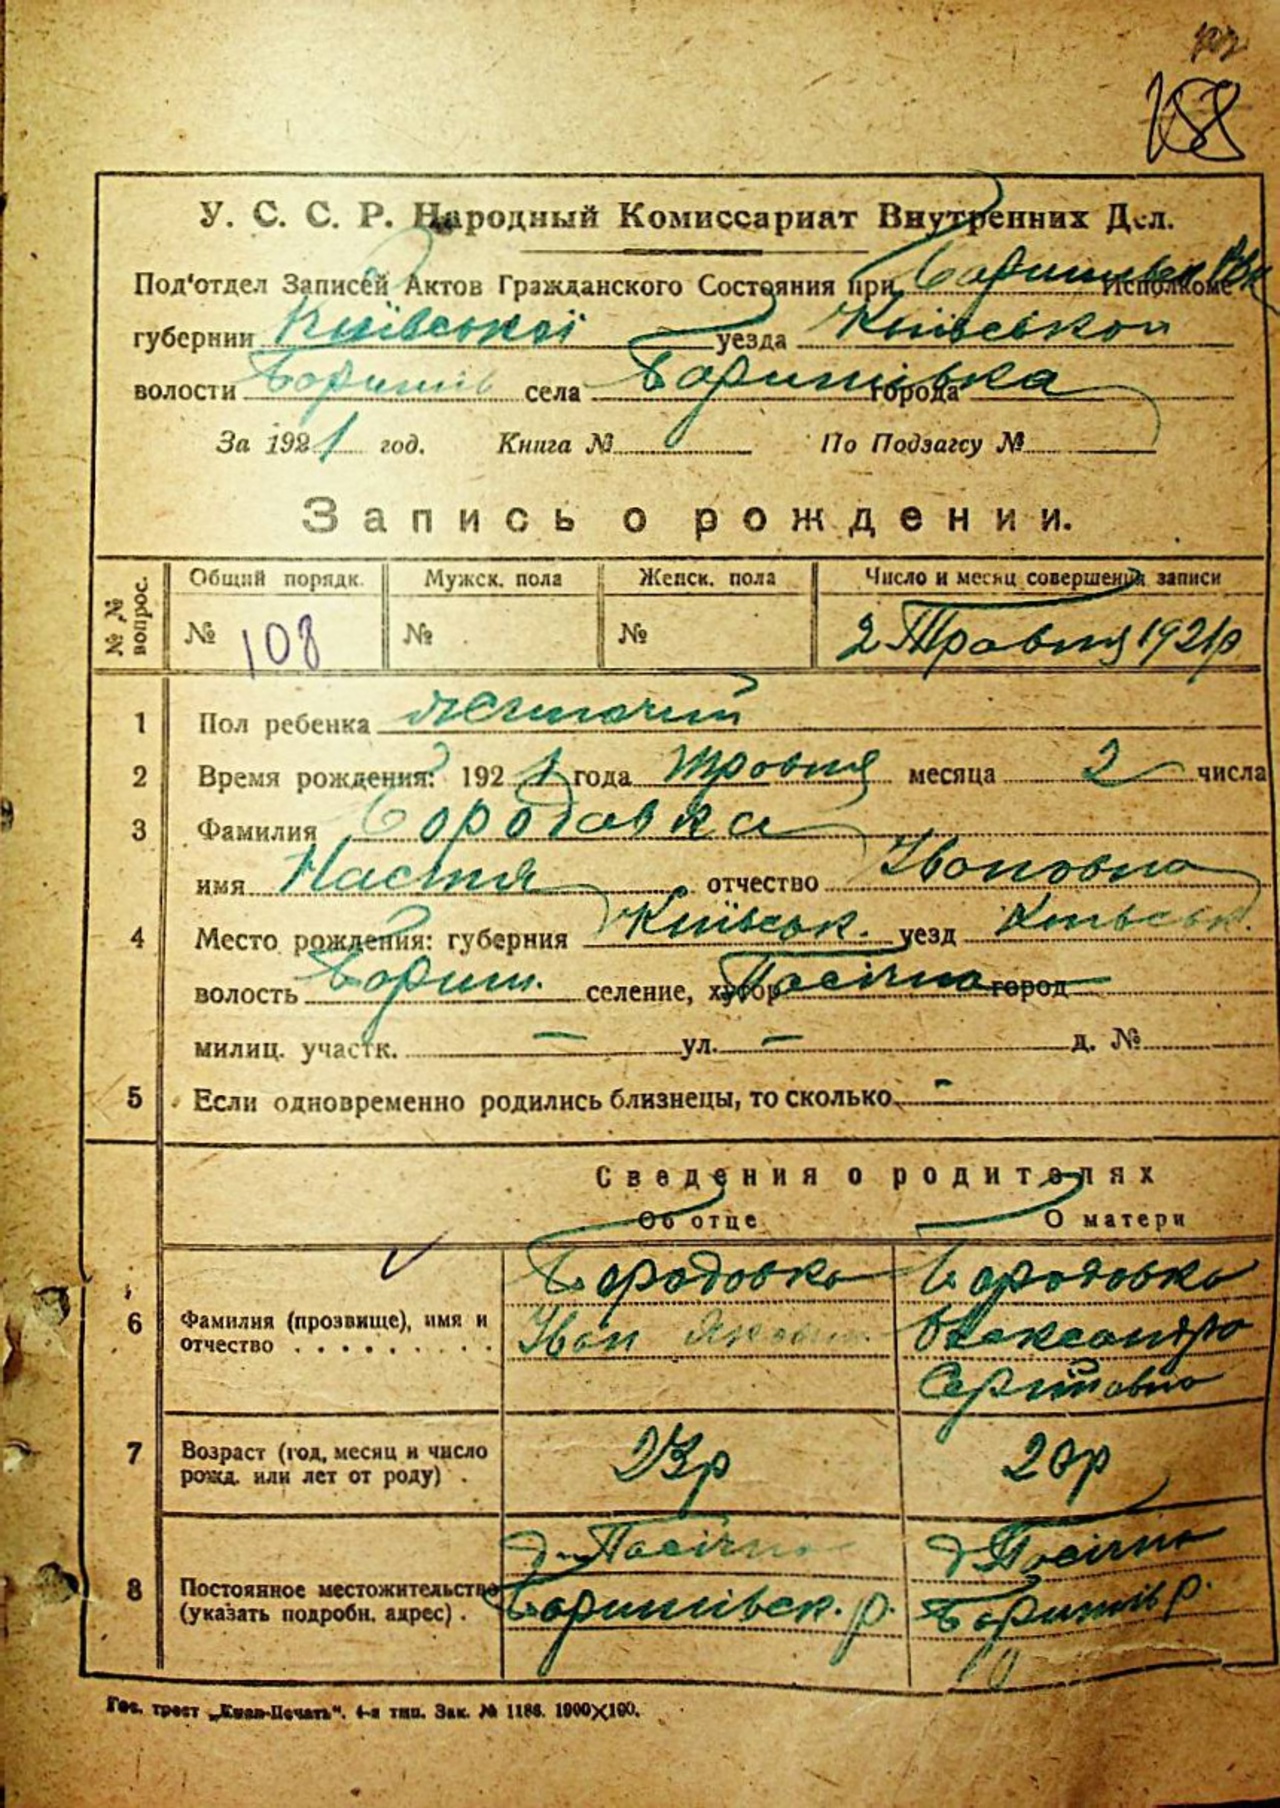 188
У. С. С. Р. Народный Комиссариат Внутренних Дел.
Под'отдел Записей Актов Гражданского Состояния при Исполкоме
губернии Київської уезда Київської
волости Баришів села Баришівка города
За 1921 год. Книга № По Подзагсу №
Запись о рождении.
№ № вопрос. Общий порядк. Мужск. пола Женск. пола Число и месяц совершения записи
№ 108 № № 2 Травня 1921р
1 Пол ребенка жіночий
2 Время рождения: 1921 года травня месяца 2 числа
3 Фамилия Бородавка
имя Настя отчество Івановна
4 Место рождения: губерния Київськ. уезд Київськ.
волость Бариш. селение, хутор Пасічна город
милиц. участк. – ул. – д. №
5 Если одновременно родились близнецы, то сколько -
Сведения о родителях
Об отце О матери
Бородовка Бородовка
6 Фамилия (прозвище), имя и Іван Олександра
отчество . . . . . . . . . . Сергіївна
7 Возраст (год, месяц и число 23р 20р
рожд. или лет от роду) .
д. Пасічна д. Пасічна
8 Постоянное местожительство Баришівськ. р. Баришів р.
(указать подробн. адрес) .
Гос. трест „Киев-Печать". 4-я тип. Зак. № 1186. 1000×100.